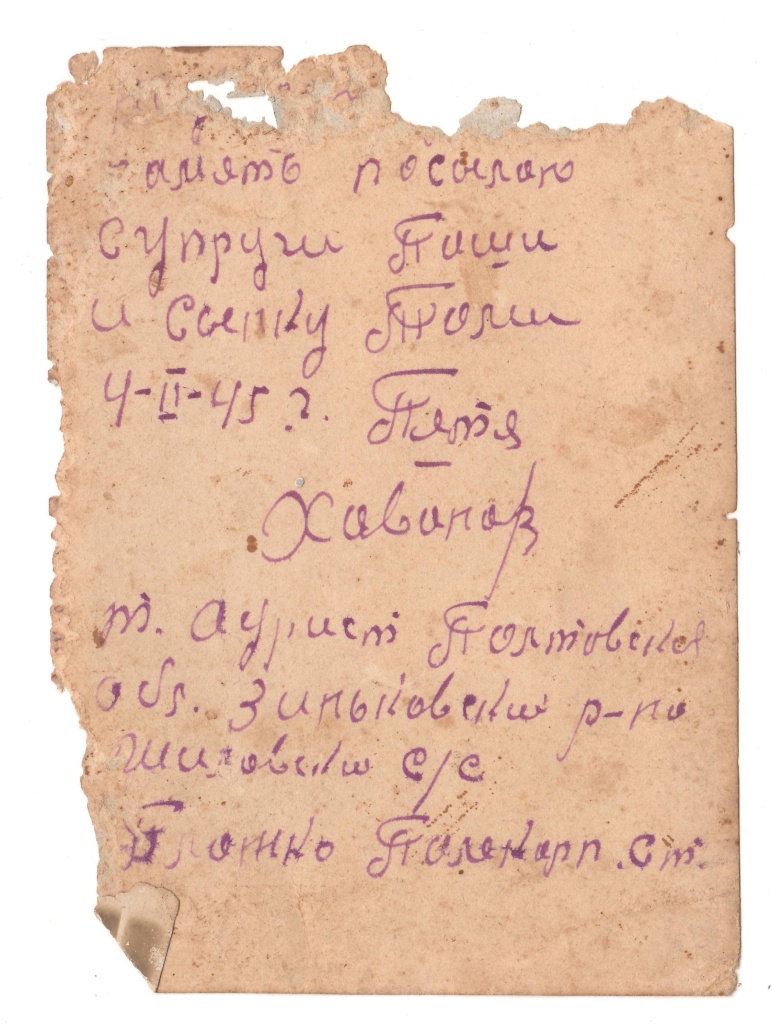 память посылаю
супруги Паши
и сыпку Толи
4-II-45 г. Пятя
Хованов
т. Аурист Полтовская
обл. Зиньковский р-но
Шиловский с/с
Полекарп. Ст.